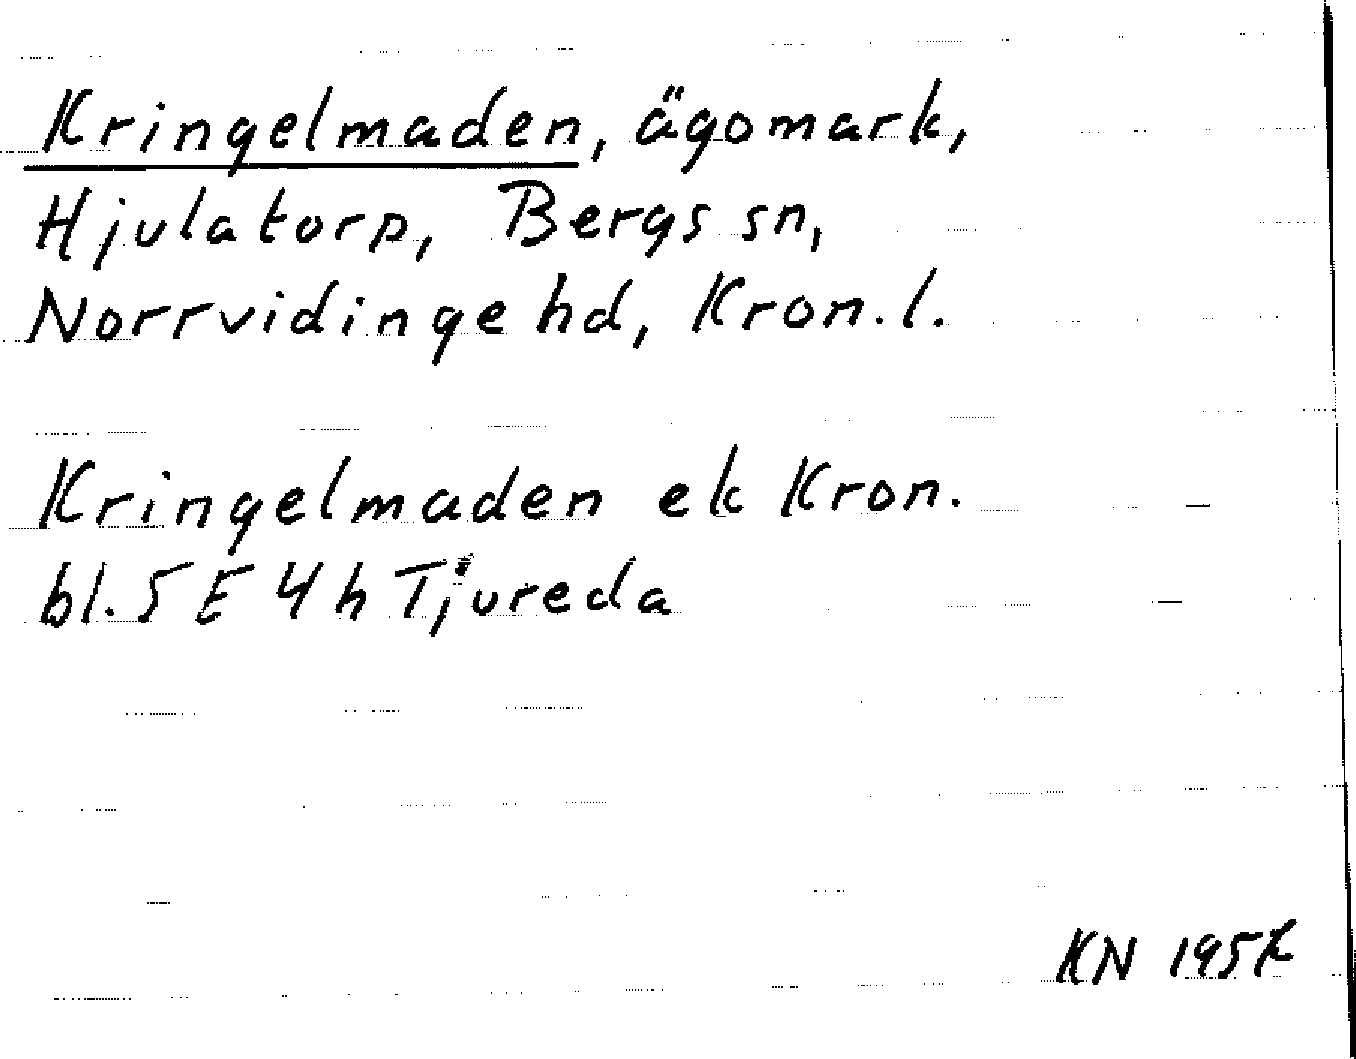 Kringelmaden, ägomark,
Hjulatorp, Bergs sn,
Norrvidinge hd, Kron. l.
Kringelmaden ek Kron.
bl. 5 E 4 h Tjureda
KN